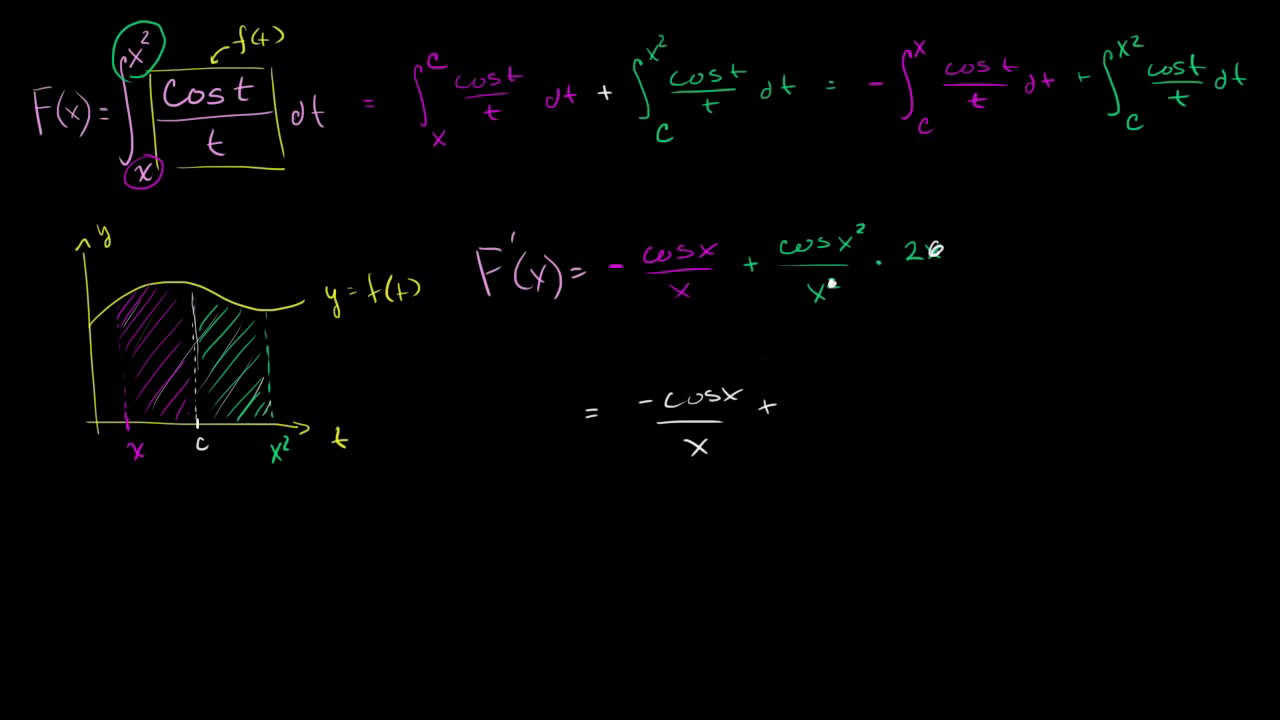 f(t)
F(x) = ∫_x^{x²} cos t / t dt = ∫_x^c cos t / t dt + ∫_c^{x²} cos t / t dt = - ∫_c^x cos t / t dt + ∫_c^{x²} cos t / t dt
y
F'(x) = - cos x / x + cos x² / x² · 2x
y = f(t)
= -cos x / x +
x c x² t